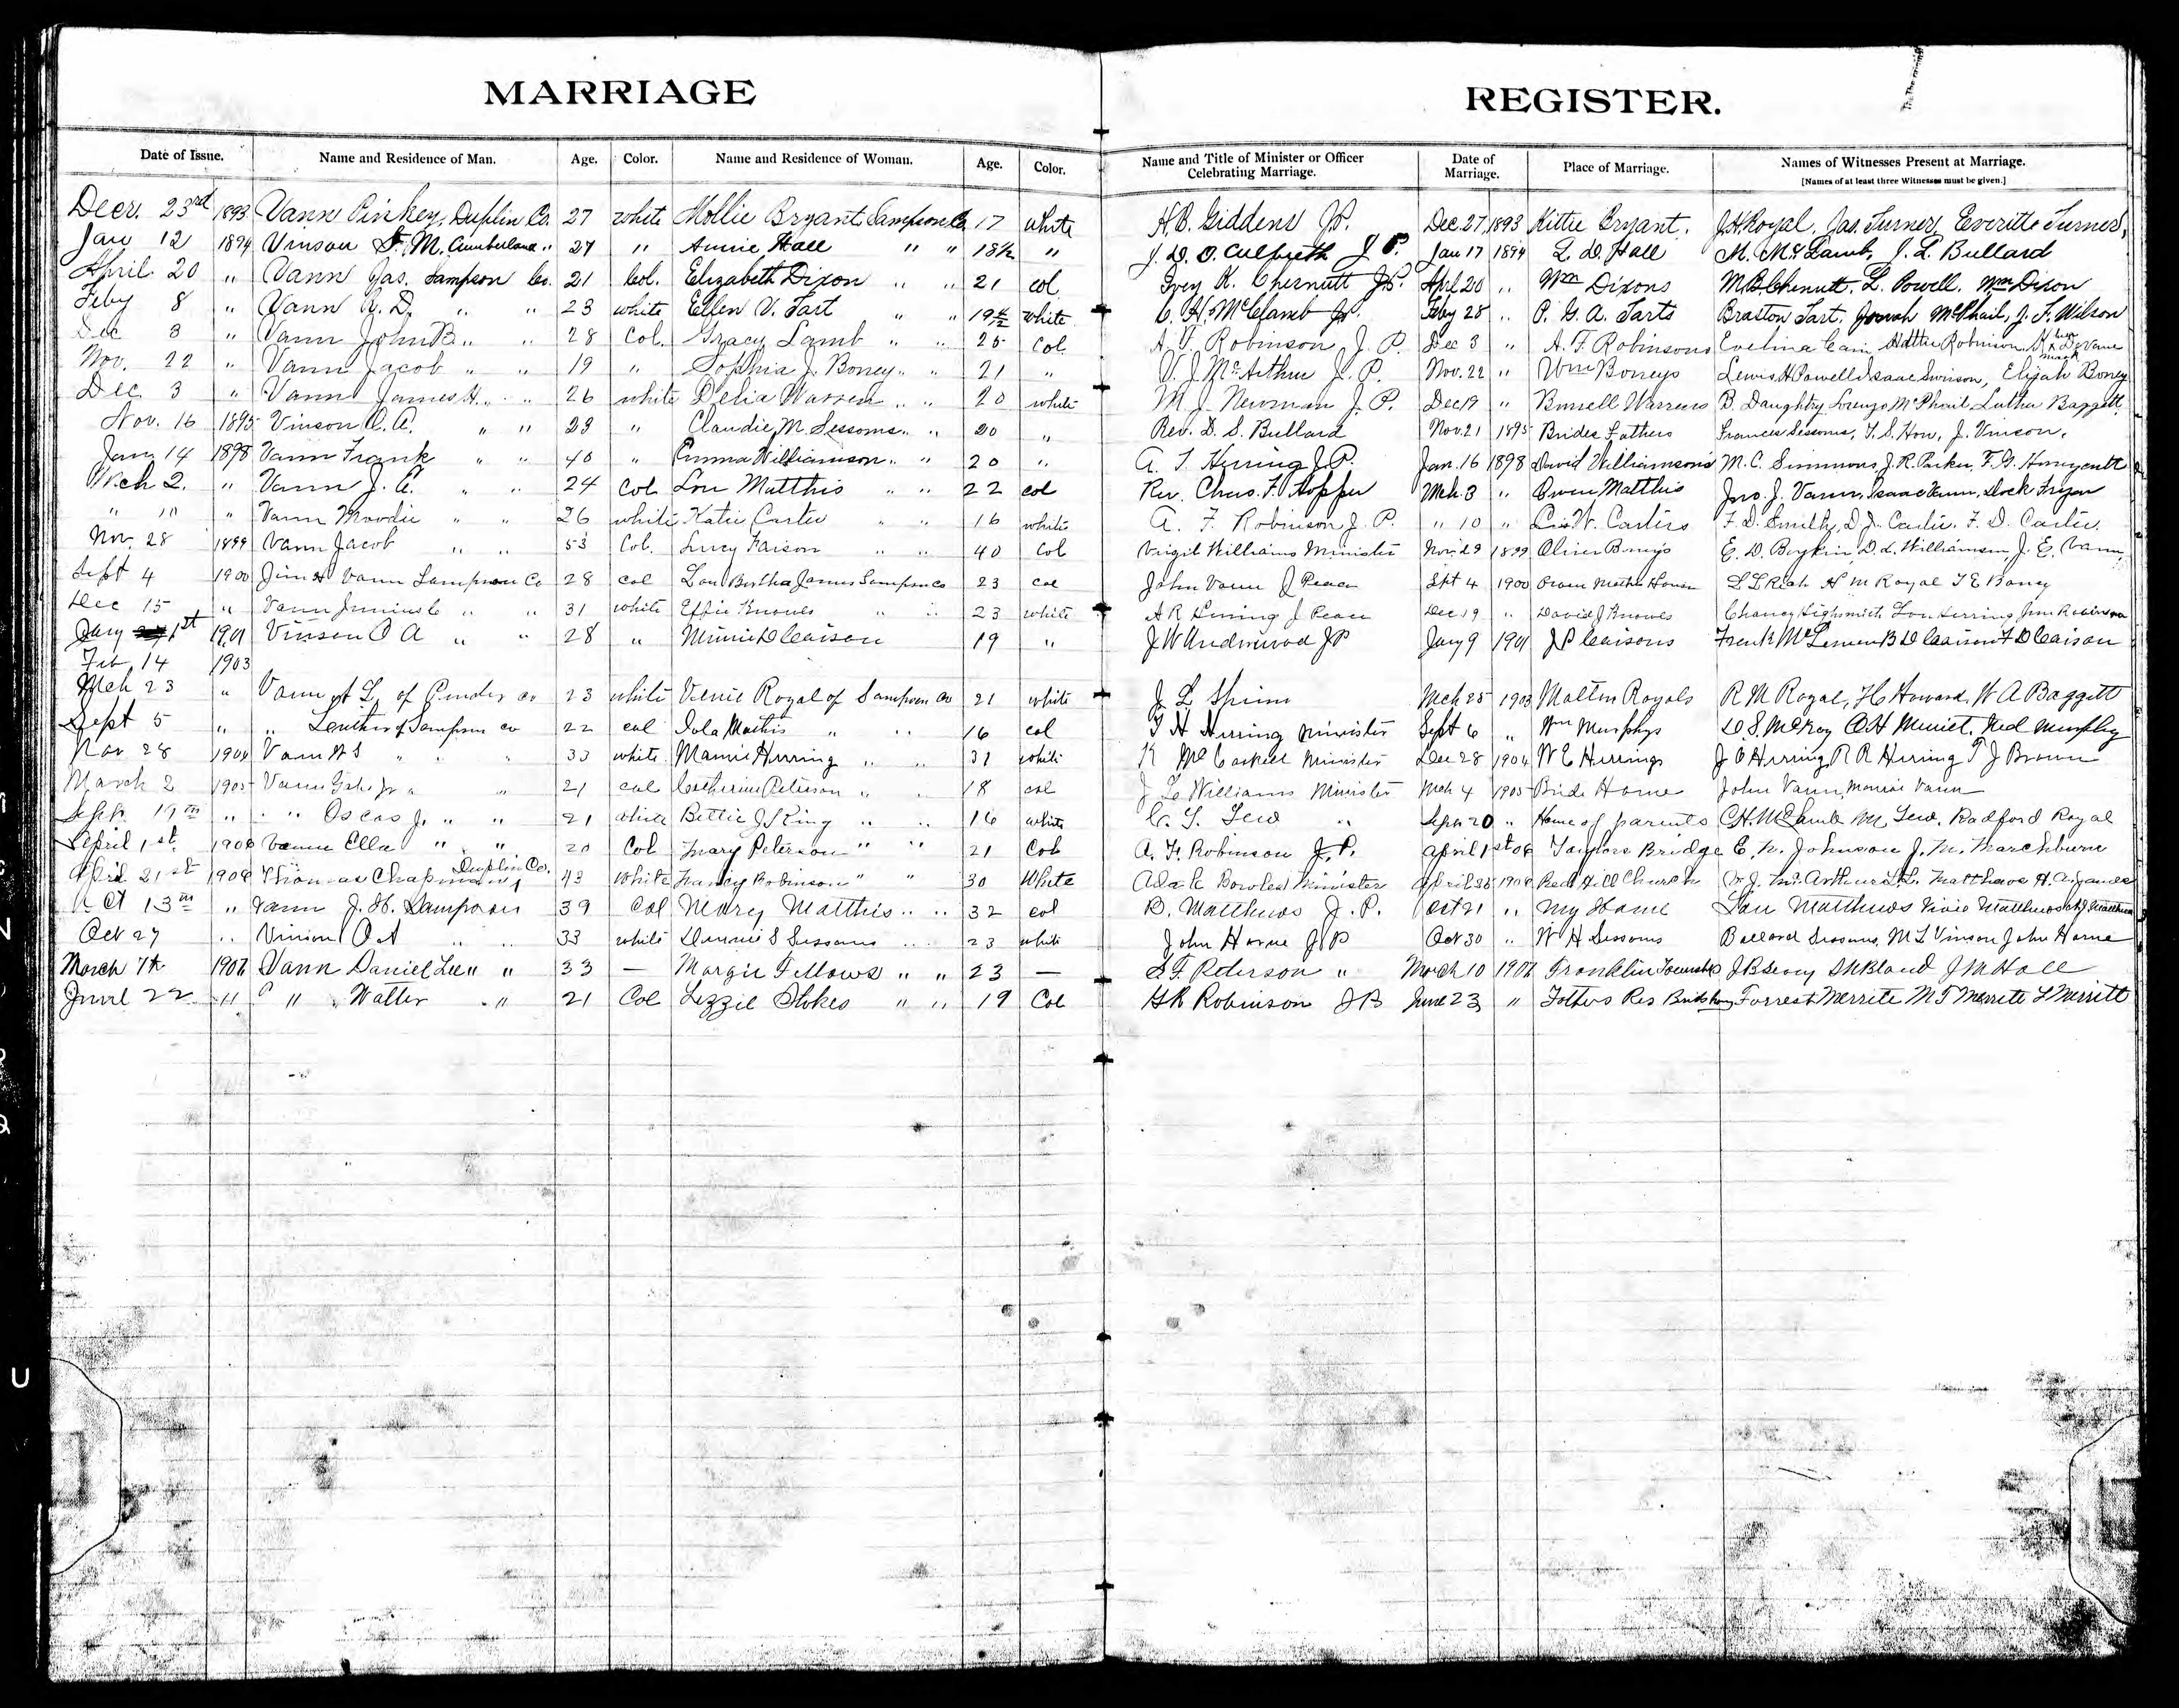 MARRIAGE REGISTER.
Date of Issue. Name and Residence of Man. Age. Color. Name and Residence of Woman. Age. Color. Name and Title of Minister or Officer Celebrating Marriage. Date of Marriage. Place of Marriage. Names of Witnesses Present at Marriage. [Names of at least three Witnesses must be given.]
Decr. 23rd 1893 Vann Pinkey, Duplin Co. 27 white Mollie Bryant Sampson Co. 17 white H. B. Giddens J.P. Dec. 27 1893 Kittie Bryant. J.H. Royal, Jas. Turner, Everitte Turner,
Jan 12 1894 Vinson F. M. Cumberland " 27 " Annie Hall " " 18½ " J. D. O. Culbreth J. P. Jan 17 1894 L. D. Hall M. McLamb, J. L. Bullard
April 20 " Vann Jas. Sampson Co. 21 Col. Elizabeth Dixon " " 21 col Ivey K. Chernutt J.P. Apl 20 " Wm Dixons M.B. Chernutt. L. Powell. Wm Dixon
Feby 8 " Vann A. D. " " 23 white Ellen V. Tart " " 19½ white C. H. McClamb J.P. Feby 28 " P. G. A. Tarts Braston Tart. Josiah McPhail, J. F. Wilson
Dec 3 " Vann John B. " " 28 Col. Gracy Lamb " " 25 Col. A. F. Robinson J. P. Dec 3 " A. F. Robinsons Evelina Cain Hattie Robinson, his x mark Vann
Nov. 22 " Vann Jacob " " 19 " Sophia J. Boney " " 21 " V. J. McArthur J. P. Nov. 22 " Wm Boneys Lewis H Powell Isaac Swinson, Elijah Boney
Dec. 3 " Vann James H. " " 26 white Delia Warren " " 20 white M. J. Newman J. P. Dec 19 " Bunell Warrens B. Daughtry Lorenzo McPhail Luther Baggett
Nov. 16 1895 Vinson O. A. " " 23 " Claudie M. Sessoms " " 20 " Rev. D. S. Bullard Nov. 21 1895 Brides Fathers Frances Sessoms, J. Vinson.
Jan 14 1898 Vann Frank " " 40 " Emma Williamson " " 20 " A. T. Herring J.P. Jan. 16 1898 David Williamson's M. C. Simmons, J. R. Parker, F. G. Honeycutt
Mch 2. " Vann J. A. " " 24 col Lou Matthis " " 22 col Rev. Chas. F. Hopper Mch. 3 " Owen Matthis Jno. J. Vann, Isaac Vann, Dock
" 10 " Vann Moodie " " 26 white Katie Carter " " 16 white A. F. Robinson J. P. " 10 " W. Carters F. D. Smith, D. J. Carter. F. D. Carter.
Nov. 28 1899 Vann Jacob " " 53 Col. Lucy Faison " " 40 Col Virgil Williams Minister Nov. 29 1899 Oliver Boneys E. D. Boykin, D. L. Williamson, J. E. Vann
Sept 4 1900 Jim H Vann Sampson Co 28 col Lou Bertha James Sampson co 23 col John Vann J Peace Spt 4 1900 L L Rich H M Royal T E Boney
Dec 15 " Vann " " 31 white Effie Knowes " " 23 white A R Herring J Peace Dec 19 " David J Knowes Chancy Highsmith Lon Herring Jim Robinson
Jany 1st 1901 Vinson O A " " 28 " Minnie D Caison 19 " J W Underwood JP Jany 9 1901 J P Caisons Frank McLemen B D Caison F D Caison
Feb 14 1903
Mch 23 " Vann of Pender co 23 white Royal of Sampson co 21 white J L Mch 25 1903 Malton Royals R M Royal, H Howard, W A Baggett
Sept 5 " " of Sampson co 22 col Iola Mathis " " 16 col T H Herring minister Sept 6 " Wm Murphys D. S. McKoy Ned Murphy
Nov 28 1904 Vann W S " " 33 white Mamie Herring " " 31 white K McCaskill Minister Dec 28 1904 W E Herrings J O Herring R R Herring T J Brown
March 2 1905 Vann Gabe Jr " " 21 col Catherine Peterson " " 18 col Williams Minister Mch 4 1905 Bride Home John Vann, Vann
Sept. 19th " " Oscar J. " " 21 white Bettie J S King " " 16 white C. T. Tew " Sept 20 " Home of parents C.H. McLamb M. Tew. Radford Royal
April 1st. 1906 Vann Ella " " 20 Col Mary Peterson " " 21 Col A. F. Robinson J.P. April 1st 06 Taylors Bridge E. N. Johnson J. M. Marchburn
April 21st 1906 Thomas Chapman Duplin Co. 43 White Nancy Robinson " " 30 White Bowles Minister April 1906 Red Hill Church W. J. McArthur Matthews
Oct 13th " Vann J. H. Sampson 39 Col Mary Matthis " " 32 col D. Matthews J. P. Oct 21 " My Home Lou Matthews
Oct 27 " Vinson O A " " 33 white S Sessoms " " 23 white John Horne J P Oct 30 " W H Sessoms Ballard Sessoms, M L Vinson John Horne
March 7th 1907 Vann Daniel Lee " " 33 — Margie Fellows " " 23 — E. F. Roberson " March 10 1907 Franklin Township J B Seavy Bland J M Hall
June 22 " " Walter " " 21 Col Lizzie Stokes " " 19 Col G R Robinson J P June 23 " Fathers Res Forrest Merrite M T Merrite Merritt